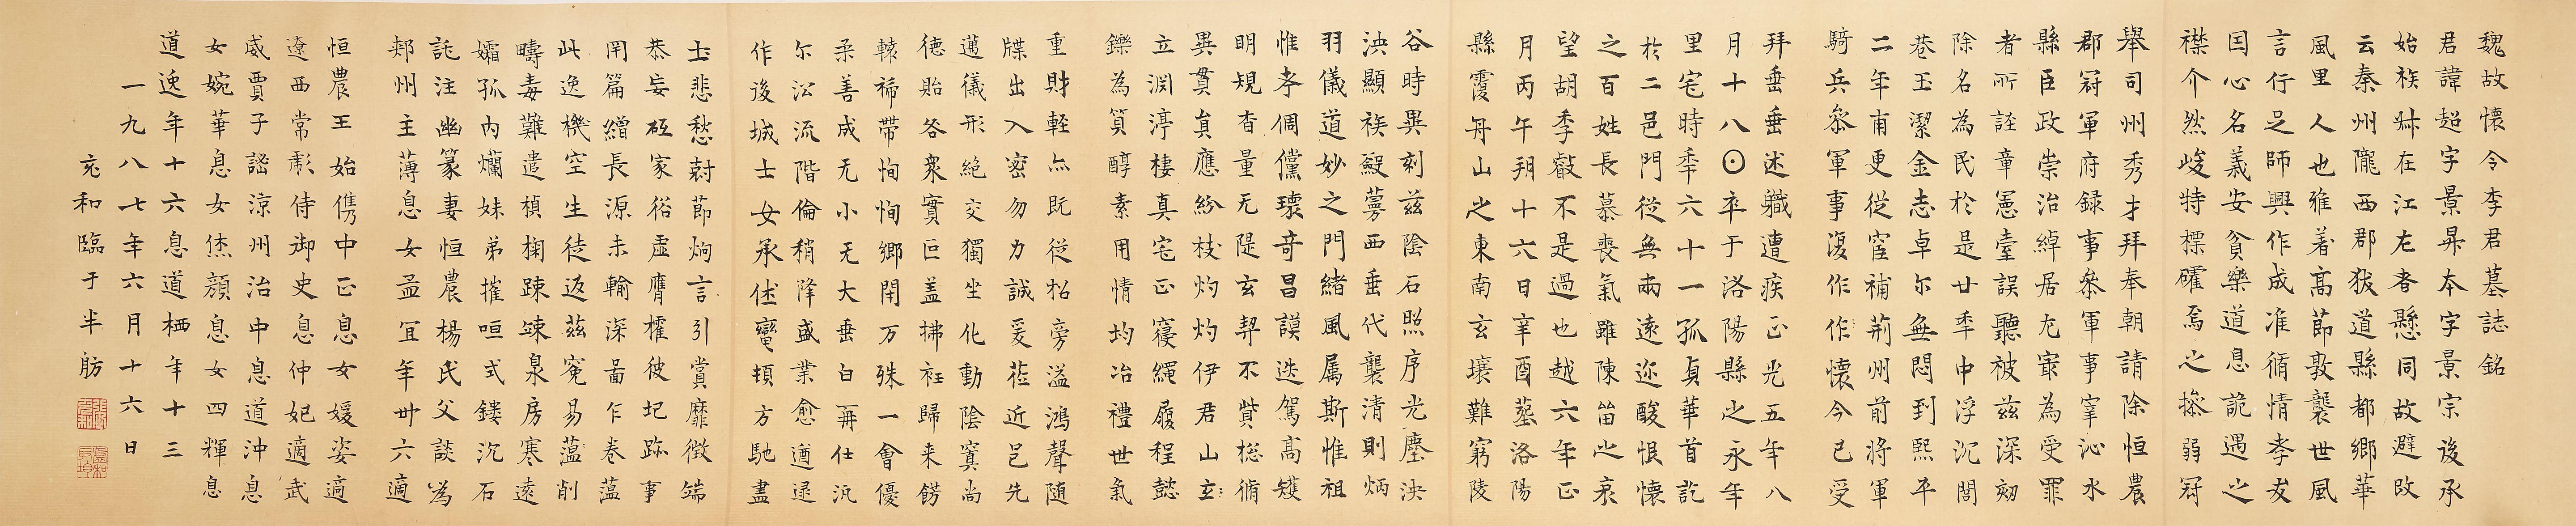 魏故懷令李君墓誌銘
君諱超字景昇本字景宗後承
始族姉在江左者懸同故避改
云秦州隴西郡狄道縣都鄉華
風里人也雅著高節敦襲世風
言行足師興作成准循情孝友
因心名義安貧樂道息詭遇之
襟介然峻特標礭焉之操弱冠
舉司州秀才拜奉朝請除恒農
郡冠軍府録事叅軍事宰沁水
縣臣政崇治綽居尤寂為受罪
者所誣章憲臺誤聽被兹深劾
除名為民於是廿季中浮沉閭
巷玉潔金志卓尓無悶到熙平
二年甫更從宦補荆州前將軍
騎兵叅軍事復作作懷令已受
拜垂垂述職遭疾正光五年八
月十八⊙卒于洛陽縣之永年
里宅時季六十一孤貞華首訖
於二邑門從無兩遠迩酸恨懷
之百姓長慕喪氣雖陳笛之哀
望胡季叡不是過也越六年正
月丙午朔十六日辛酉葬洛陽
縣覆舟山之東南玄壤難窮陵
谷時異刻兹陰石照序光塵泱
泱顯族蕚西垂代襲清則炳
羽儀道妙之門緒風属斯惟祖
惟孝倜儻瓌奇昌謨迭駕高矱
明規杳量无隄玄契不貲揔脩
異貫貟應紛枝灼灼伊君山立
立淵渟棲真宅正寠繩履程懿
鑠為質醇素用情均冶禮世氣
重財輊既從旁溢鴻聲随
牒出入密勿力誠爰莅近邑先
邁儀形絶交獨坐化動陰冥尚
德貽咎衆實叵盖拂衽歸来餝
轅稀帶恂恂鄉閈万殊一會優
柔善成无小无大垂白再仕沉
尓沿流階倫稍降盛業愈遒逯
作後城士女承蠻頓方馳盡
士悲愁節炯言引賞靡徴端
恭妄家俗虚膺櫂彼圯跡事
罔篇繒長源未輸深啚乍卷藴
此逸機空生徒返兹寃易藴削
疇毒難遣楨掬踈竦泉房寒遠
孀孤内爛妹弟摧咺式鏤沉石
託注幽篆妻恒農楊氏父談為
郏州主薄息女孟宜年卅六適
恒農王始儁中正息女媛姿適
遼西常彰侍御史息仲妃適武
威賈子謐涼州治中息道沖息
女婉華息女顔息女四輝息
道逸年十六息道栖年十三
一九八七年六月十六日
充和臨于半舫